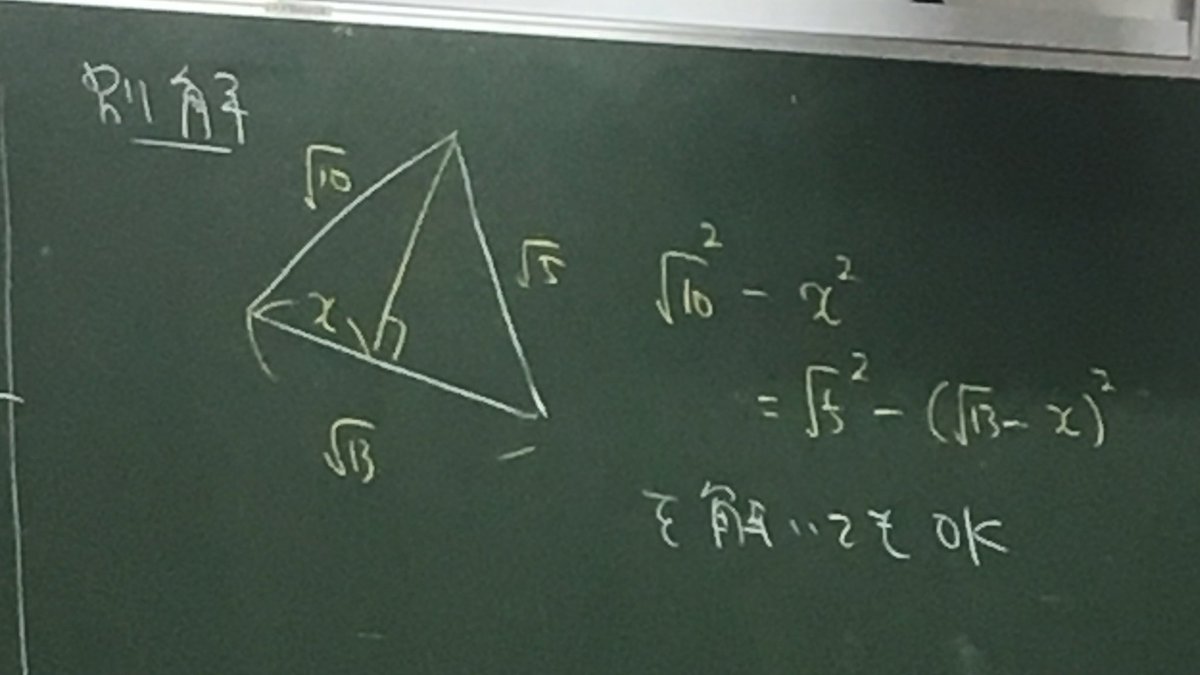 別解
√10
√5
x
√13
√10² - x²
= √5² - (√13 - x)²
を解いてもOK